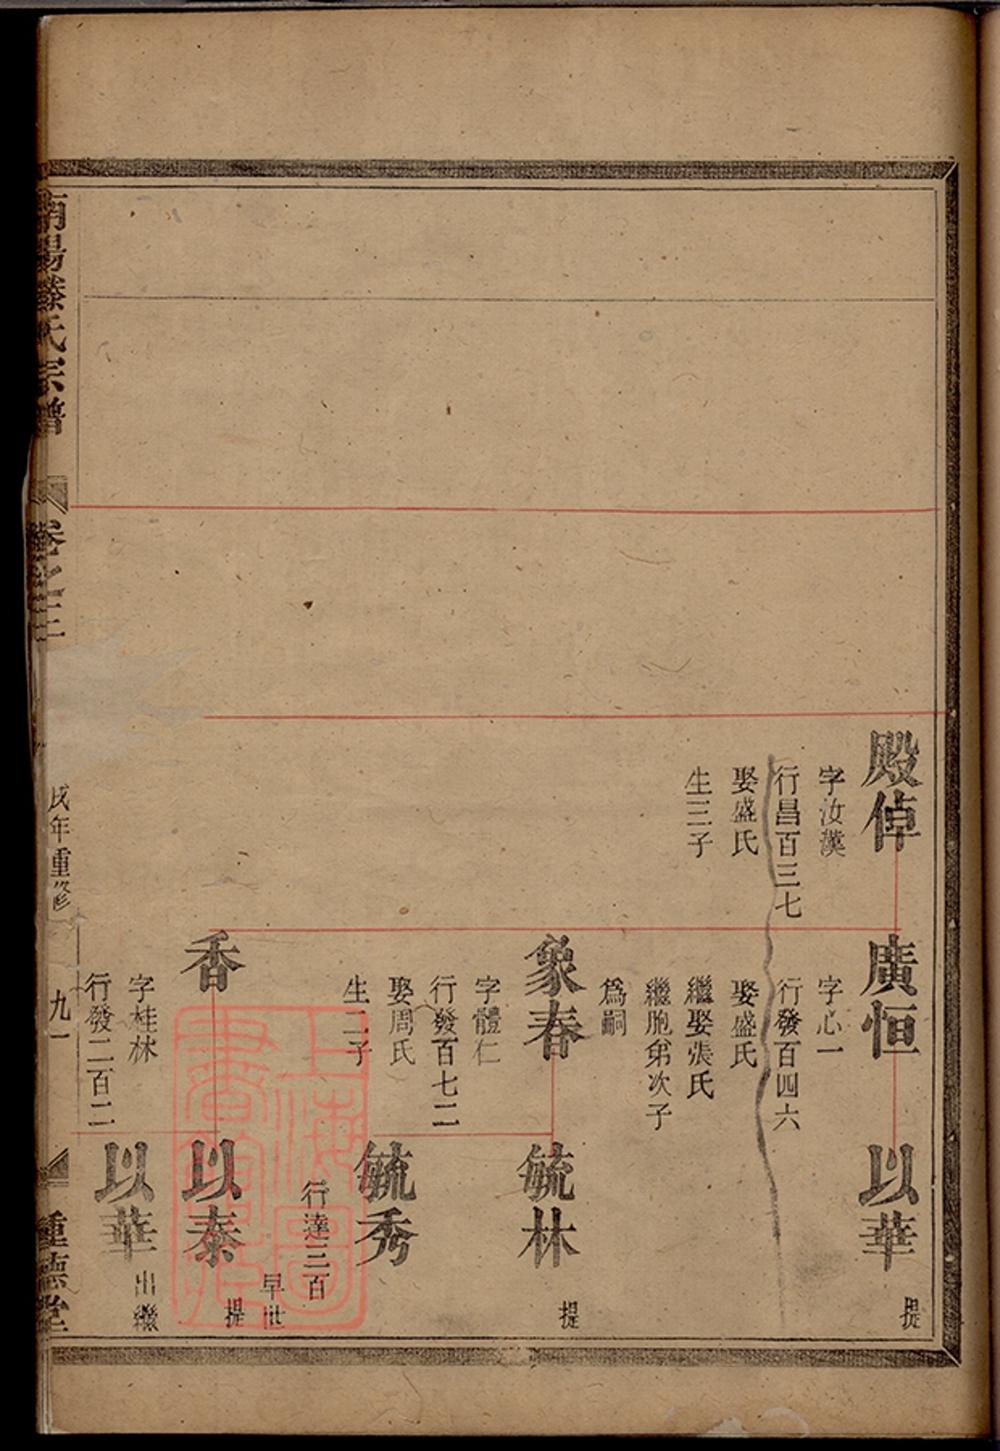 殿倬
字汝漢
行昌百三七
娶盛氏
生三子
廣恒
字心一
行發百四六
娶盛氏
繼娶張氏
繼胞弟次子
爲嗣
以華
提
象春
字體仁
行發百七二
娶周氏
生二子
毓林
提
毓秀
行達三百
早世
香
字桂林
行發二百二
以泰
提
以華
出繼
南陽滕氏宗譜
卷之三
戌年重修
九一
重德堂
上海圖書館藏